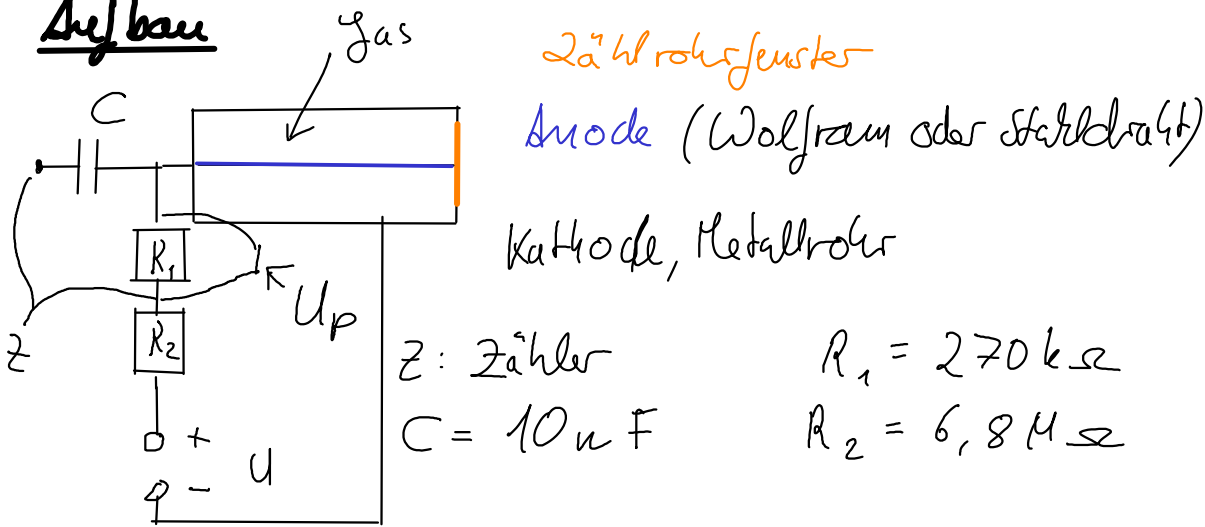 Aufbau
Gas
Zählrohrfenster
C
Anode (Wolfram oder Stahldraht)
Kathode, Metallrohr
R₁
U_p
R₂
Z
Z: Zähler
R₁ = 270 kΩ
C = 10 nF
R₂ = 6,8 MΩ
+
U
-